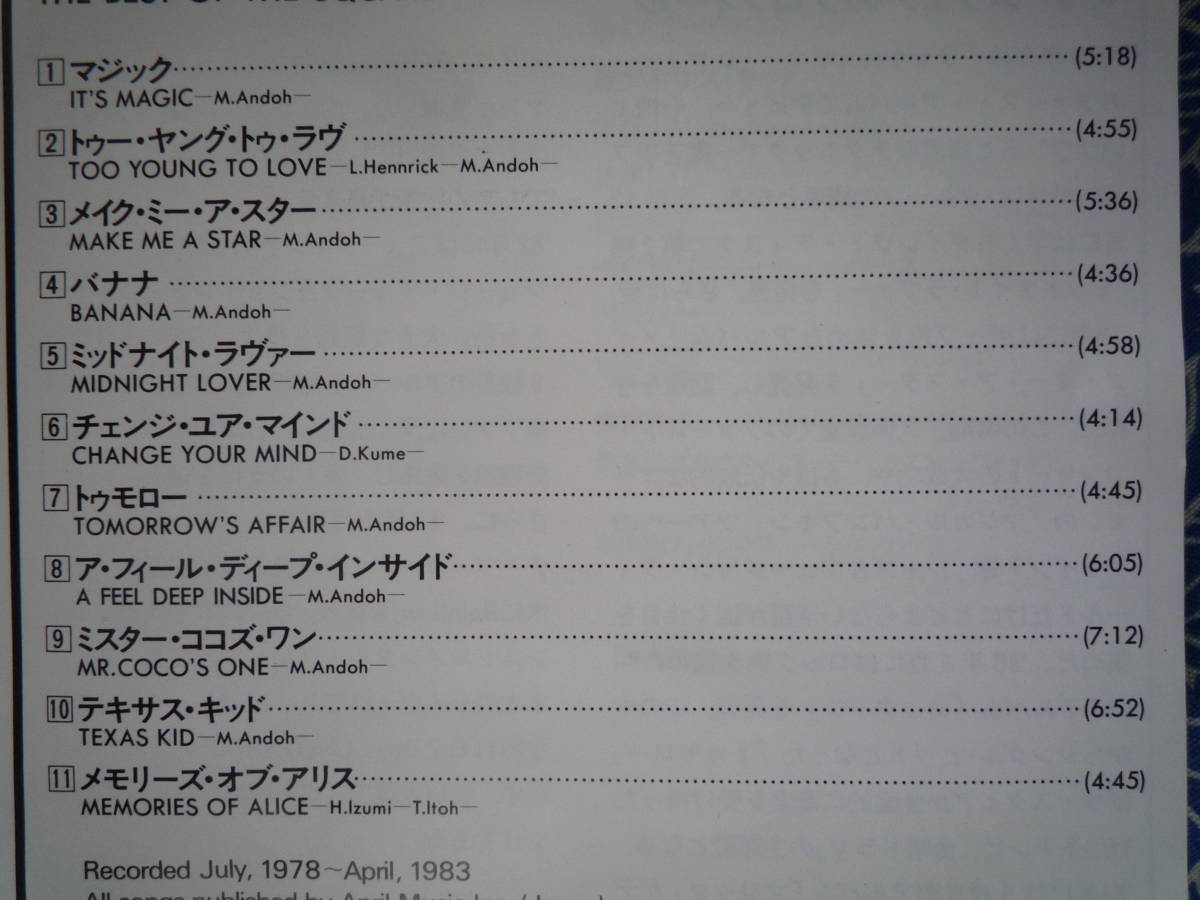 THE BEST OF THE
1 マジック (5:18)
IT'S MAGIC—M.Andoh—
2 トゥー・ヤング・トゥ・ラヴ (4:55)
TOO YOUNG TO LOVE—L.Hennrick—M.Andoh—
3 メイク・ミー・ア・スター (5:36)
MAKE ME A STAR—M.Andoh—
4 バナナ (4:36)
BANANA—M.Andoh—
5 ミッドナイト・ラヴァー (4:58)
MIDNIGHT LOVER—M.Andoh—
6 チェンジ・ユア・マインド (4:14)
CHANGE YOUR MIND—D.Kume—
7 トゥモロー (4:45)
TOMORROW'S AFFAIR—M.Andoh—
8 ア・フィール・ディープ・インサイド (6:05)
A FEEL DEEP INSIDE—M.Andoh—
9 ミスター・ココズ・ワン (7:12)
MR.COCO'S ONE—M.Andoh—
10 テキサス・キッド (6:52)
TEXAS KID—M.Andoh—
11 メモリーズ・オブ・アリス (4:45)
MEMORIES OF ALICE—H.Izumi—T.Itoh—
Recorded July, 1978~April, 1983
All songs published by April Music Inc.